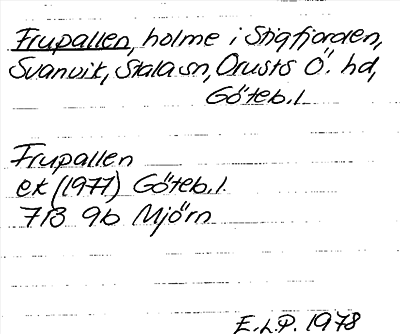 Frupallen, holme i Stigfjorden,
Svanvik, Stala sn, Orusts Ö. hd,
Göteb. l.
Frupallen
ek (1977) Göteb. l.
7B 9b Mjörn
E.L.P. 1978